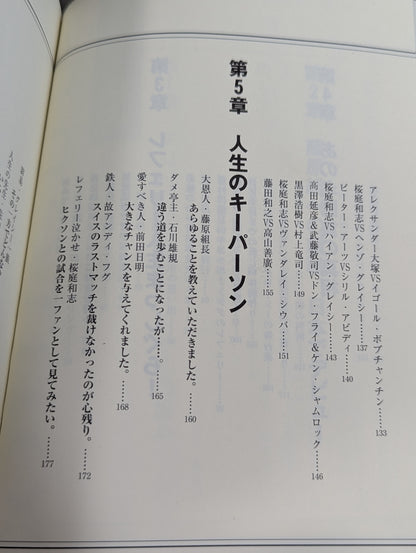 アレクサンダー大塚VSイゴール・ボブチャンチン 133
桜庭和志VSヘンゾ・グレイシー……137
ピーター・アーツVSシリル・アビディ……140
桜庭和志VSハイアン・グレイシー……143
高田延彦&武藤敬司VSドン・フライ&ケン・シャムロック……146
黒澤浩樹VS村上竜司……149
桜庭和志VSヴァンダレイ・シウバ……151
藤田和之VS高山善廣……155
第5章 人生のキーパーソン
大恩人・藤原組長
あらゆることを教えていただきました。……160
ダメ亭主・石川雄規
違う道を歩むことになったが……。……165
愛すべき人・前田日明
大きなチャンスを与えてくれました。……168
鉄人・故アンディ・フグ
スイスのラストマッチを裁けなかったのが心残り。……172
レフェリー泣かせ・桜庭和志
ヒクソンとの試合を一ファンとして見てみたい。……177